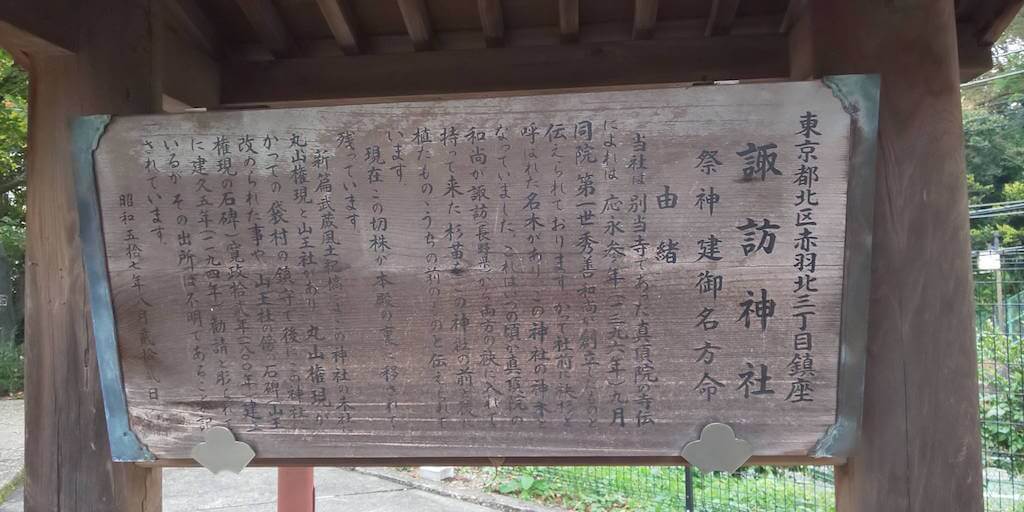 東京都北区赤羽北三丁目鎮座
諏訪神社
祭神 建御名方命
由緒
当社は、別当寺であった真頂院の寺伝
によれば、応永参年(一三九六年)九月
同院第一世秀善和尚が創立したものと
伝えられております。かつて社前に袂杉と
呼ばれた名木があり、この神社の神木と
なっていました。これはこの頃、真頂院の
和尚が諏訪(長野県)から両方の袂に入れて
持って来た杉苗を、この神社の前と後に
植えたもの、うちの前のものと伝えられて
います。
現在この切株が本殿の裏に移されて
残っています。
新篇武蔵風土記稿には、この神社の末社
丸山権現と山王社があり、丸山権現が
かつての袋村の鎮守で後に、この神社に
改められた事や、山王社の傍の石碑山王
権現の石碑(寛政拾弐年一八〇〇年)建
に建久五年(一一九四年)勧請と彫られて
いるが、その出所は不明であることが記
されています。
昭和五拾七年八月弐拾 日